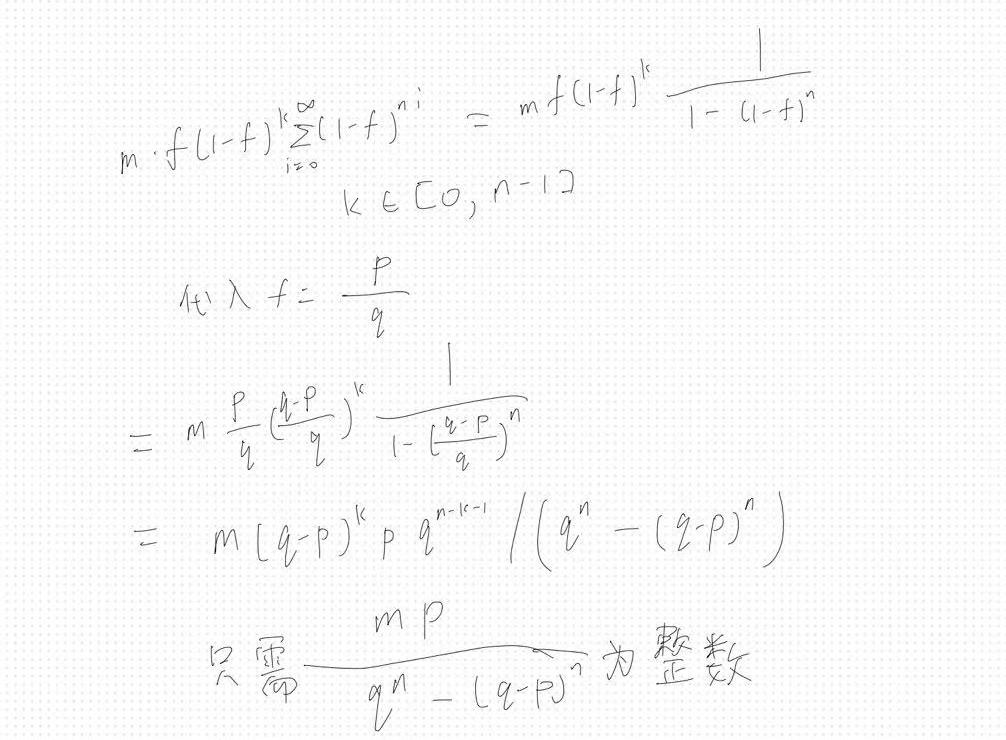 m · f(1-f)^k ∑_{i=0}^{∞} (1-f)^{ni} = m f(1-f)^k \frac{1}{1-(1-f)^n}
k ∈ [0, n-1]
代入 f = \frac{p}{q}
= m \frac{p}{q} (\frac{q-p}{q})^k \frac{1}{1-(\frac{q-p}{q})^n}
= m(q-p)^k p q^{n-k-1} / (q^n - (q-p)^n)
只需 \frac{mp}{q^n - (q-p)^n} 为整数